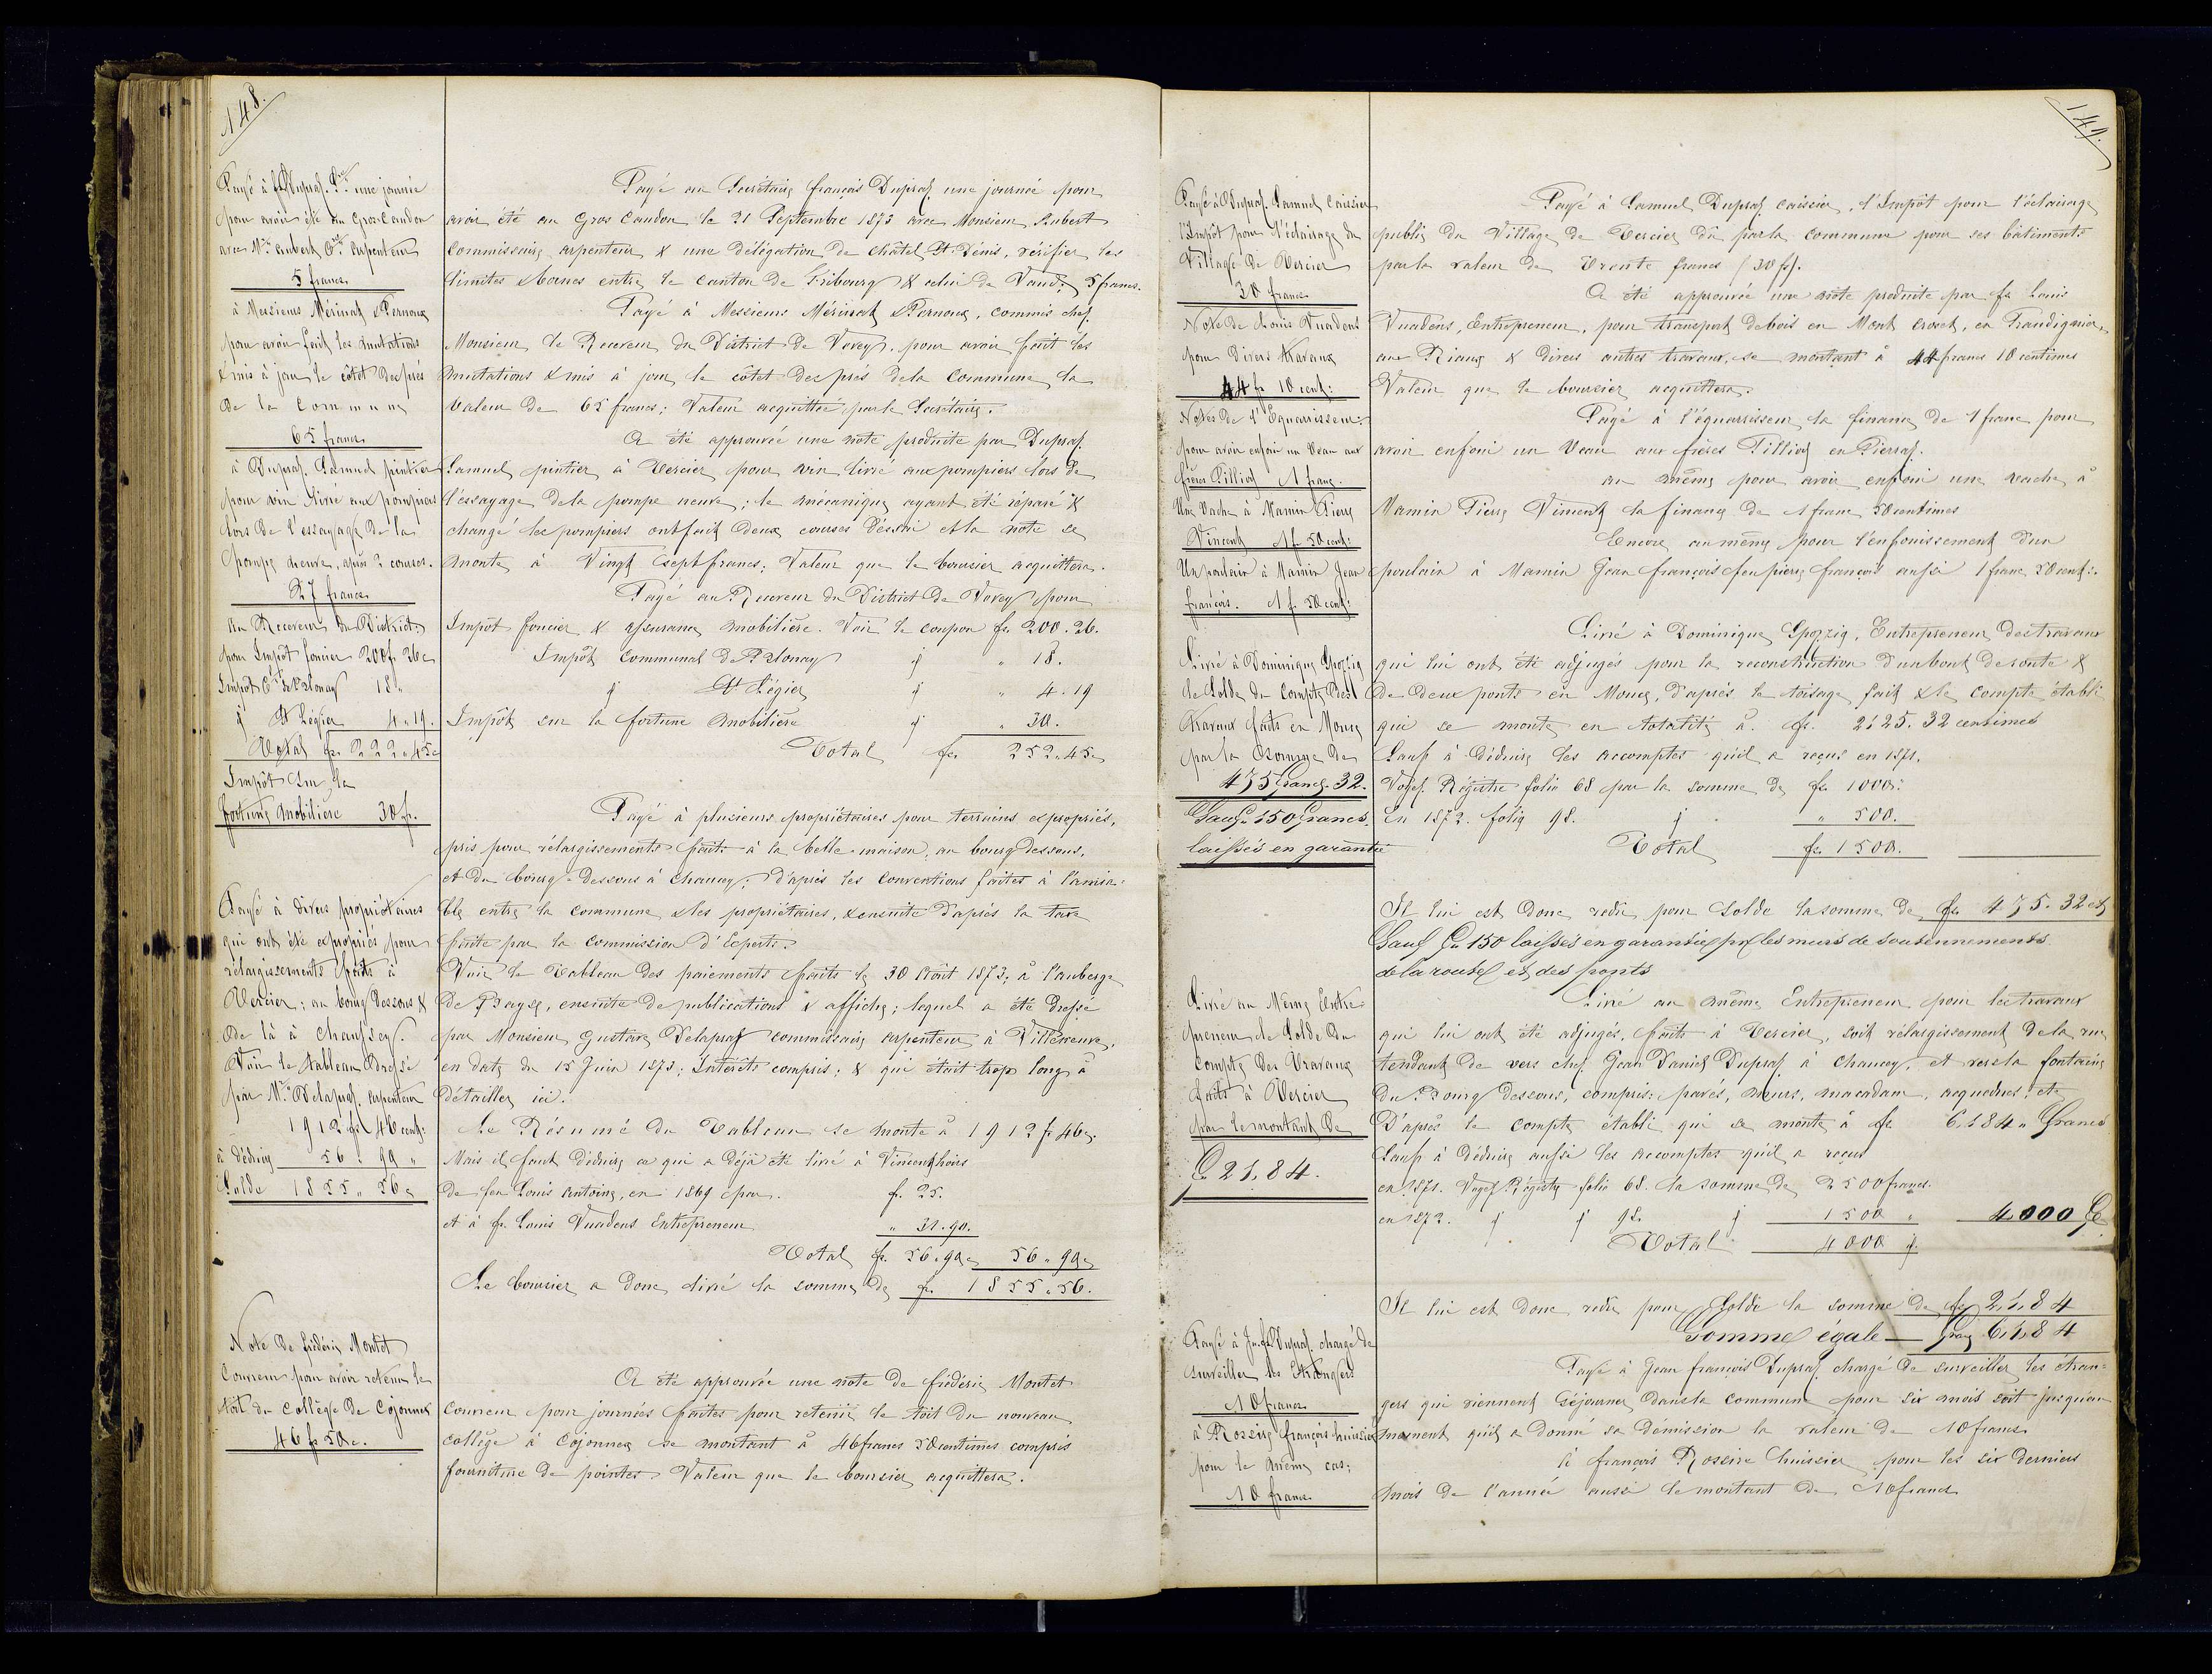 148.
Payé à f. Dupraz. S.re une journée
pour avoir été au Gros-Caudon
avec Mr. Aubert C.re arpenteur
5 francs
à Messieurs Mérinat & Pernoux
pour avoir fait les mutations
& mis à jour le côtet des prés
de la Commune
65 francs
à Dupraz. Samuel pintier
pour vin livré aux pompiers
lors de l'essayage de la
Pompe neuve, après 2 courses.
27 francs
Au Receveur du District:
pour Impôt foncier 200 f. 26 c
Impôt C.al de Blonay 18 "
" St Légier 4 " 19.
Total fr. 222 " 45 c
Impôt sur la
fortune mobilière 30 fr.
Payé à divers propriétaires
qui ont été expropriés pour
rélargissements faits à
Vercier; au bourg dessous &
de là à Chaussey.
Voir le tableau dressé
par Mr. Delapraz. arpenteur
1912 fr 46 cent:
à déduire 56 . 90 "
Solde 1855 " 56 c
Note de frédéric Montet
Couvreur pour avoir retenu le
toit du collège de Cojonnex
46 fr 50 c.
Payé au Secrétaire françois Dupraz une journée pour
avoir été au Gros Caudon le 21 Septembre 1873 avec Monsieur Aubert
Commissaire arpenteur & une délégation de Châtel St. Denis, vérifier les
limites & bornes entre le canton de Fribourg & celui de Vaud. 5 francs.
Payé à Messieurs Mérinat & Pernoux, commis chez
Monsieur le Receveur du District de Vevey. pour avoir fait les
mutations & mis à jour le côtet des prés de la Commune la
valeur de 65 francs; Valeur acquittée par le Secrétaire.
A été approuvée une note produite par Dupraz.
Samuel pintier à Vercier pour vin livré aux pompiers lors de
l'essayage de la pompe neuve; le mécanique ayant été réparé &
changé les pompiers ont fait deux courses d'essai et la note se
monte à Vingt sept francs; Valeur que le boursier acquittera.
Payé au Receveur du District de Vevey pour
Impôt foncier & assurance mobilière. Voir le coupon fr. 200. 26.
Impôt communal de Blonay " " 18.
" St Légier " " 4. 19
Impôt sur la fortune mobilière " " 30.
Total fr. 252 " 45 c
Payé à plusieurs propriétaires pour terrains expropriés,
pris pour rélargissements faits à la belle-maison, au bourg dessous,
et du bourg-dessous à Chaucey; d'après les Conventions faites à l'amia-
ble entre la commune & les propriétaires, & ensuite d'après la taxe
faite par la Commission d'Experts.
Voir le Tableau des paiements faits le 30 Août 1873; à l'auberge
de Baye, ensuite de publications & affiche; lequel a été dressé
par Monsieur Gustave Delapraz commissaire arpenteur à Villeneuve,
en date du 15 Juin 1873; Intérêts compris; & qui était trop long à
détailler ici.
Le Résumé du Tableau se monte à 1912 fr 46 c.
Mais il faut déduire ce qui a déjà été livré à Vincent hoirs
de feu Louis Antoine, en 1869 par. f. 25.
et à fr. Louis Vuadens Entrepreneur. " 31. 90.
Total fr. 56. 90 c 56 " 90 c
Le boursier a donc livré la somme de fr. 1855 . 56.
A été approuvée une note de frédéric Montet
Couvreur pour journées faites pour retenir le toit du nouveau
collège à Cojonnex se montant à 46 francs 50 centimes compris
fourniture de pointes Valeur que le boursier acquittera.
149.
Payé à Dupraz. Samuel caissier
l'Impôt pour l'éclairage du
Village de Vercier
30 francs
Note de Louis Vuadens
pour Divers travaux
44 fr 10 cent:
Notes de l'Equarisseur:
pour avoir enfoui un Veau aux
frères Pilliod 1 franc.
Une Vache à Mamin Pierre
Vincent 1 f. 50 cent:
Un poulain à Mamin Jean
françois. 1 f. 50 cent:
Livré à Dominique Spozzig
le Solde du Compte des
travaux faits en Moucy
par la Somme de
475 francs 32.
Sauf 150 Francs,
laissés en garantie
Livré au Même Entre-
preneur le Solde du
Compte des Travaux
faits à Vercier
par le montant de
F. 2184.
Payé à Jn. f. Dupraz. chargé de
surveiller les Etrangers
10 francs
à Rossire françois huissier
pour le même cas;
10 francs
Payé à Samuel Dupraz. caissier, l'Impôt pour l'éclairage
public du Village de Vercier dû par la commune pour ses bâtiments
par la valeur de Trente francs (30 fr).
A été approuvée une note produite par fr Louis
Vuadens, Entrepreneur, pour transport de bois en Mont
aux Riaux & divers autres travaux, se montant à 44 francs 10 centimes
Valeur que le boursier acquittera.
Payé à l'équarrisseur la finance de 1 franc pour
avoir enfoui un Veau aux frères Pilliod en Pierraz.
au même pour avoir enfoui une vache à
Mamin Pierre Vincent la finance de 1 franc 50 centimes
Encore au même pour l'enfouissement d'un
poulain à Mamin Jean françois feu pierre françois aussi 1 franc 50 cent:
Livré à Dominique Spozzig, Entrepreneur des travaux
qui lui ont été adjugés pour la reconstruction d'un bout de route &
de deux ponts en Moucy, d'après le toisage fait & le compte établi
qui se monte en totalité à. fr. 2125. 32 centimes
Sauf à Déduire les accomptes qu'il a reçus en 1871.
Voyez Régistre folio 68 par la somme de fr. 1000.
En 1872. folio 98. " " 500.
Total fr. 1500.
Il lui est donc redu pour Solde la somme de fr. 475. 32 cts
Sauf Fr 150 laissés en garantie pr les murs de soutennements
de la route et des ponts
Livré au même Entrepreneur pour les travaux
qui lui ont été adjugés, faits à Vercier, soit rélargissement de la rue
tendant de vers chez Jean Daniel Dupraz à Chaucey, et vers la fontaine
du Bourg dessous, compris: pavés, murs, macadam, acqueducs: etc
D'après le compte établi qui se monte à fr 6,184 " Francs
Sauf à Déduire aussi les accomptes qu'il a reçus
en 1871. Voyez Régistre folio 68. la somme de 2500 francs.
en 1872. " " 98. " 1500 " 4000 "
Total 4000 f.
Il lui est donc redu pour Solde la somme de fr 2,184
Somme égale — Francs 6,184
Payé à Jean françois Dupraz. chargé de surveiller les étran-
gers qui viennent séjourner dans la commune pour six mois soit jusqu'au
moment qu'il a donné sa démission la valeur de 10 francs
à françois Rossire huissier pour les six derniers
mois de l'année aussi le montant de 10 francs